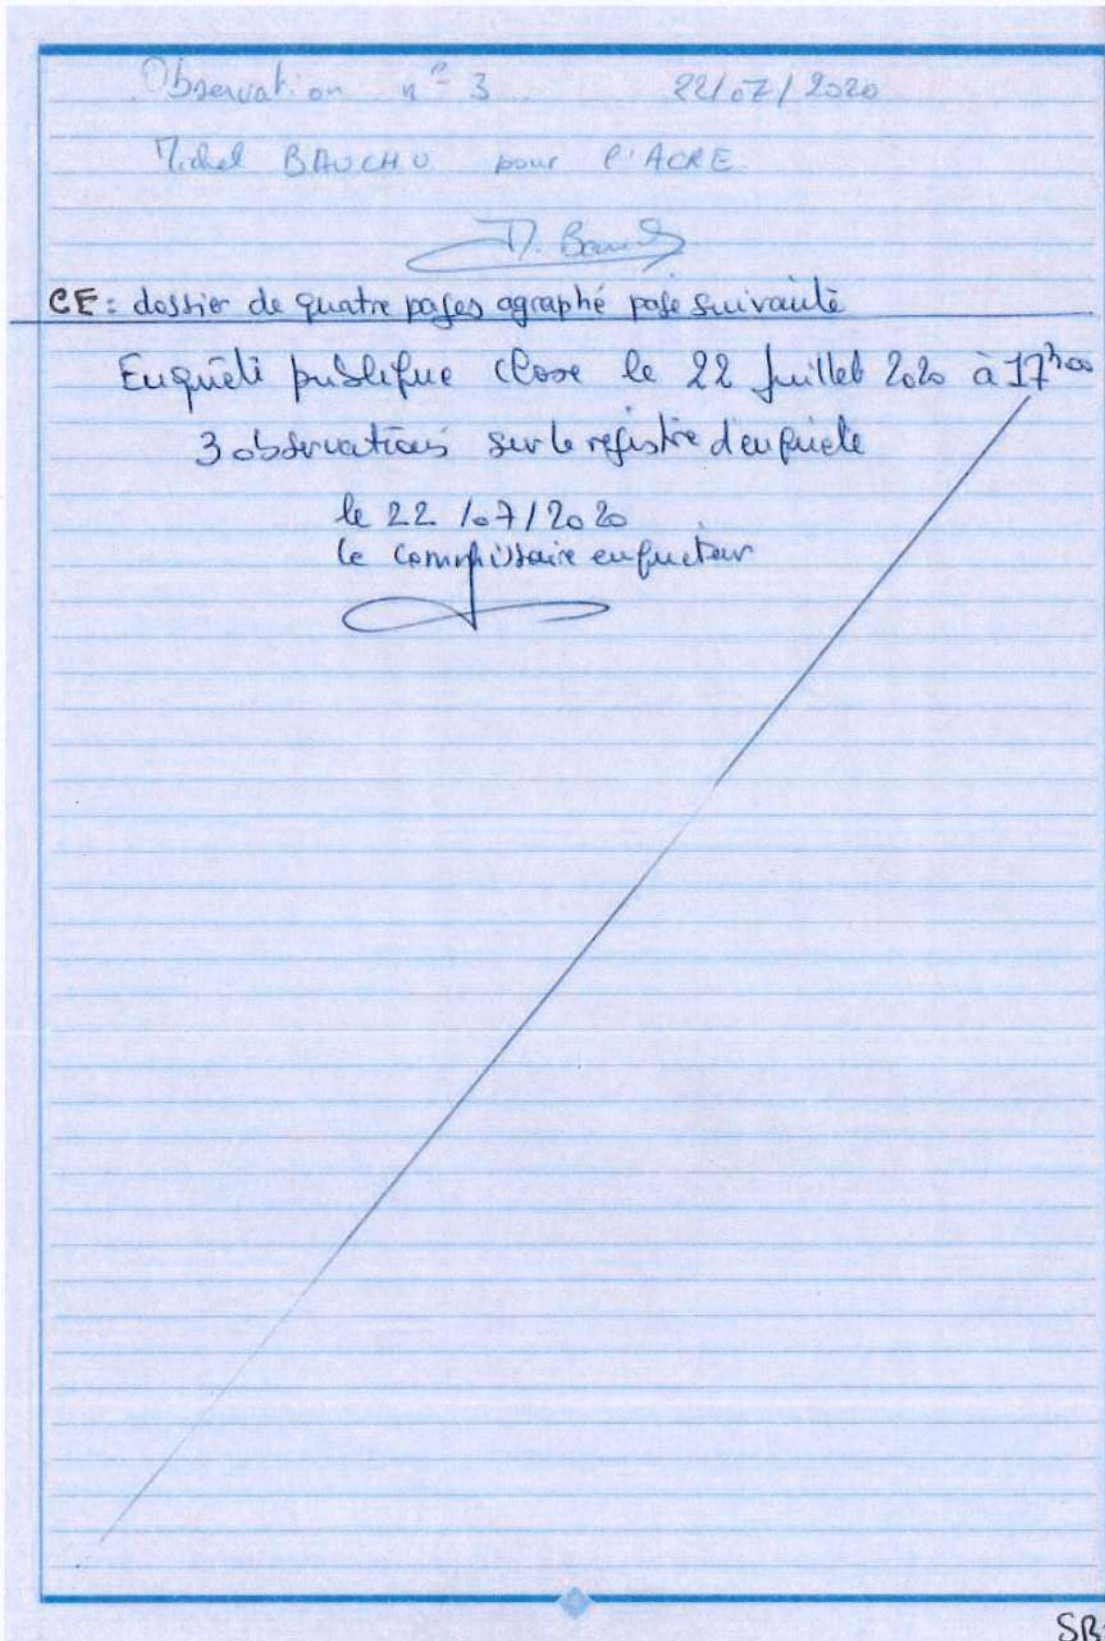 Observation n° 3 22/07/2020
Michel BAUCHU pour l'ACRE
M. Bauch
CE : dossier de quatre pages agraphé page suivante
Enquête publique close le 22 Juillet 2020 à 17h00
3 observations sur le registre d'enquête
le 22/07/2020
le commissaire enquêteur
SB